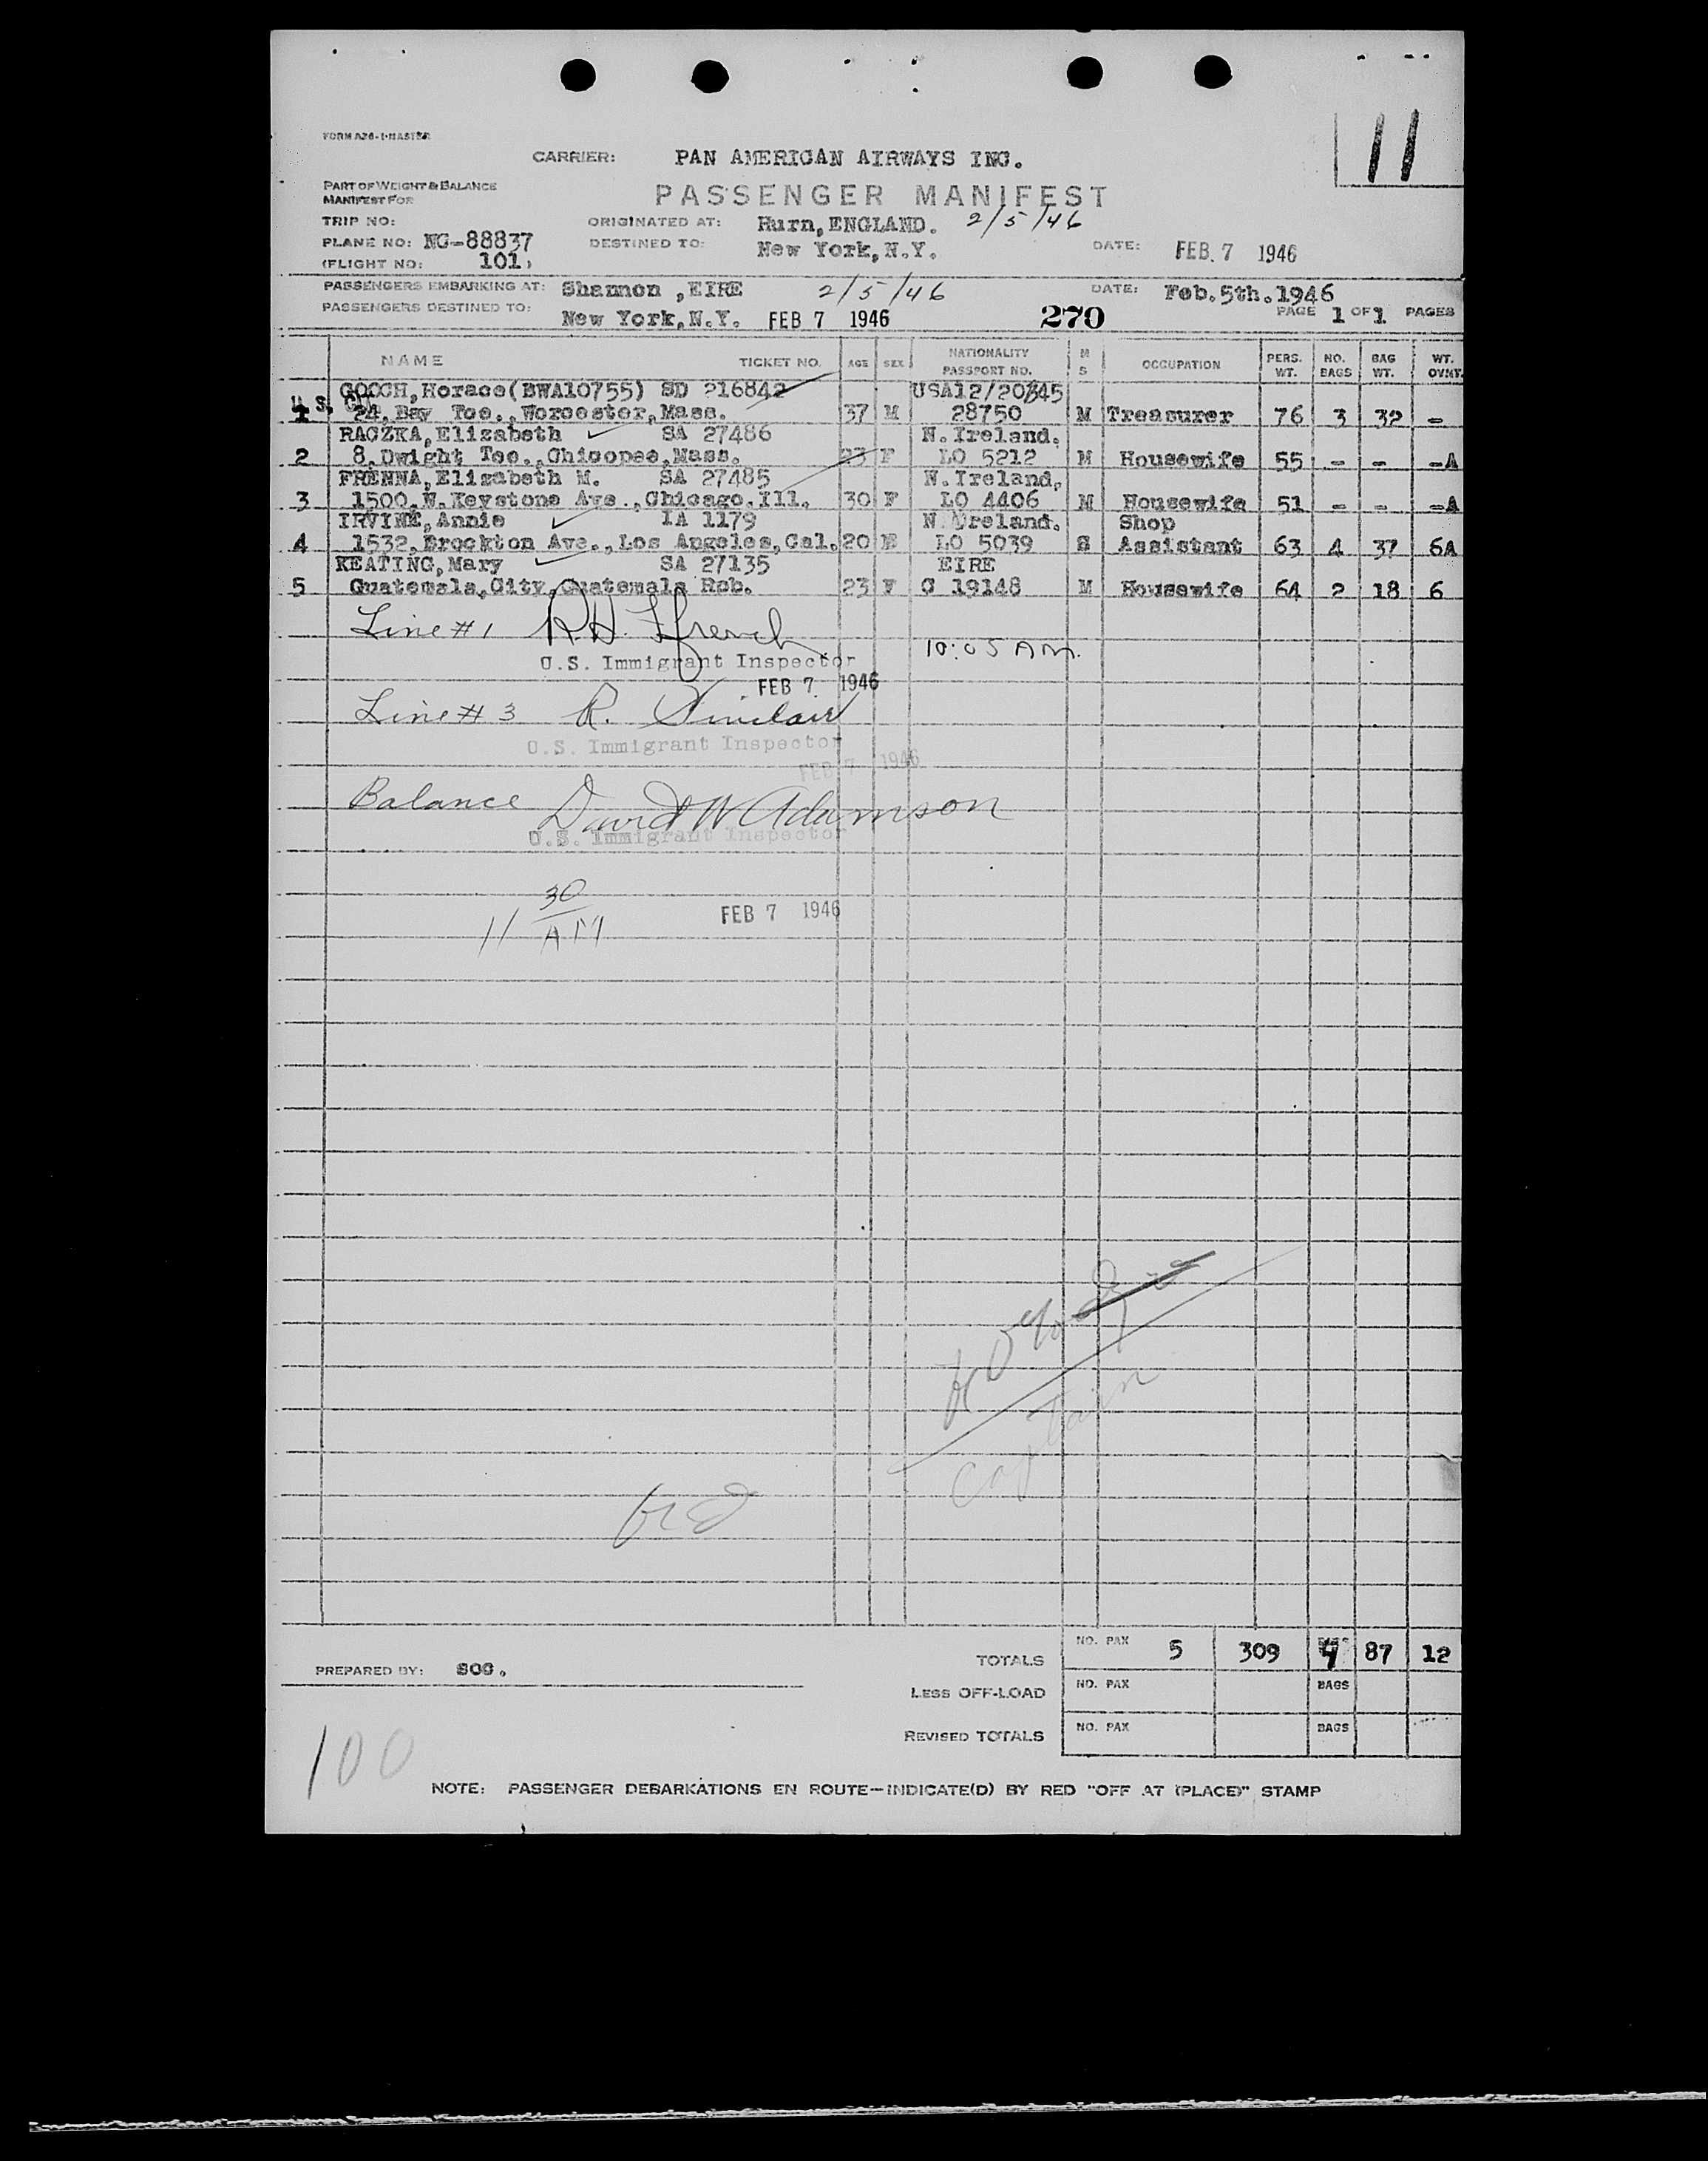 11
FORM A26-1-MASTER
CARRIER: PAN AMERICAN AIRWAYS INC.
PART OF WEIGHT & BALANCE
MANIFEST FOR
PASSENGER MANIFEST
TRIP NO: ORIGINATED AT: Hurn, ENGLAND. 2/5/46
PLANE NO: NC-88837 DESTINED TO: New York, N.Y. DATE: FEB. 7 1946
(FLIGHT NO: 101)
PASSENGERS EMBARKING AT: Shannon, EIRE 2/5/46 DATE: Feb. 5th. 1946
PASSENGERS DESTINED TO: New York, N.Y. FEB 7 1946 270 PAGE 1 OF 1 PAGES
NAME TICKET NO. AGE SEX NATIONALITY PASSPORT NO. M S OCCUPATION PERS. WT. NO. BAGS BAG WT. WT. OVWT.
GOOCH, Horace (BWA10755) SD 216842 USA12/20/45
U.S. Cit.
1 24, Bay Tce., Worcester, Mass. 37 M 28750 M Treasurer 76 3 32 -
RACZKA, Elizabeth SA 27486 N. Ireland.
2 8, Dwight Tce., Chicopee, Mass. 23 F LO 5212 M Housewife 55 - - -A
FRENNA, Elizabeth M. SA 27485 N. Ireland,
3 1500, N. Keystone Ave., Chicago. Ill. 30 F LO 4406 M Housewife 51 - - -A
IRVINE, Annie IA 1179 N. Ireland. Shop
4 1532, Brockton Ave., Los Angeles, Cal. 20 F LO 5039 S Assistant 63 4 37 6A
KEATING, Mary SA 27135 EIRE
5 Guatemala, City, Guatemala Rpb. 23 F C 19148 M Housewife 64 2 18 6
Line #1 R.H. Ffrench
U.S. Immigrant Inspector 10:05 AM.
FEB 7 1946
Line #3 R. Sinclair
U.S. Immigrant Inspector
FEB 7 1946
Balance David W Adamson
U.S. Immigrant Inspector
11 30 AM FEB 7 1946
Captain
TOTALS NO. PAX 5 309 9 87 12
PREPARED BY: SOG.
LESS OFF-LOAD NO. PAX BAGS
REVISED TOTALS NO. PAX BAGS
100
NOTE: PASSENGER DEBARKATIONS EN ROUTE—INDICATE(D) BY RED "OFF AT (PLACE)" STAMP